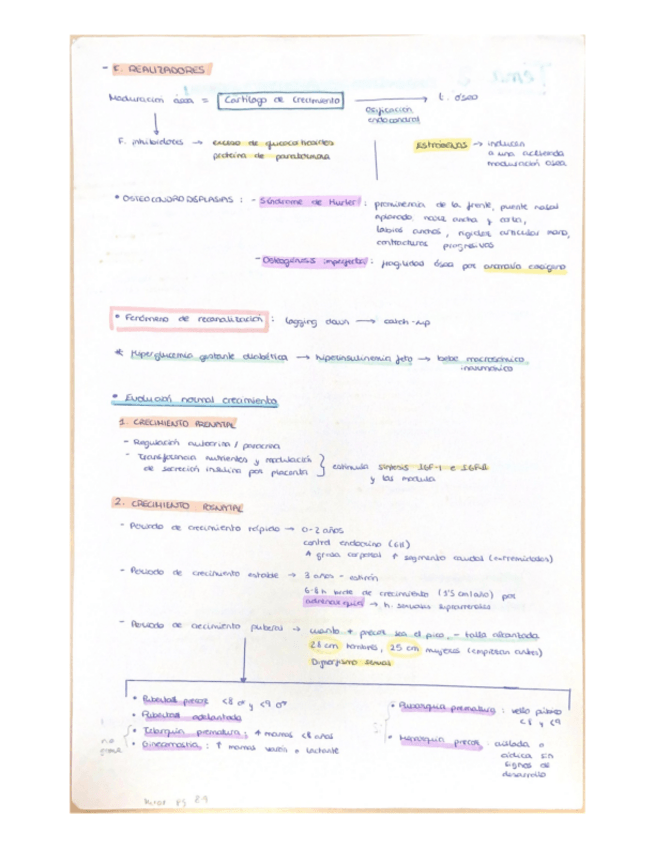 - F. REALIZADORES
Maduración ósea = Cartílago de crecimiento → t. óseo
osificación
endocondral
F. inhibidores → exceso de glucocorticoides
proteína de parathormona
Estrógenos → inducen
a una acelerada
maduración ósea
* OSTEOCONDRODISPLASIAS : - Síndrome de Hurler : prominencia de la frente, puente nasal
aplanado, nariz ancha y corta,
labios anchos, rigidez articular mano,
contracturas progresivas
- Osteogénesis imperfecta : fragilidad ósea por anomalía colágeno
* Fenómeno de recanalización : lagging down → catch-up
* Hiperglucemia gestante diabética → hiperinsulinemia feto → bebé macrosómico
inarmónico
* Evolución normal crecimiento
1. CRECIMIENTO PRENATAL
- Regulación autocrina / paracrina
- Transferencia nutrientes y modulación
de secreción insulina por placenta } estimula síntesis IGF-1 e IGF-II
y las modula
2. CRECIMIENTO POSNATAL
- Periodo de crecimiento rápido → 0-2 años
control endocrino (GH)
↑ grasa corporal ↑ segmento caudal (extremidades)
- Periodo de crecimiento estable → 3 años - estirón
6-8 a brote de crecimiento (1'5 cm/año) por
adrenarquia → h. sexuales suprarrenales
- Periodo de crecimiento puberal → cuanto + precoz sea el pico, - talla alcanzada
28 cm hombres, 25 cm mujeres (empiezan antes)
Dimorfismo sexual
* Pubertad precoz <8 ♀ y <9 ♂
* Pubertad adelantada
* Telarquia prematura : ↑ mamas <8 años
* Ginecomastia : ↑ mamas varón o lactante
no
* Pubarquia prematura : vello púbico
<8 y <9
* Menarquia precoz : aislada o
cíclica sin
signos de
desarrollo
Mirar pg 29